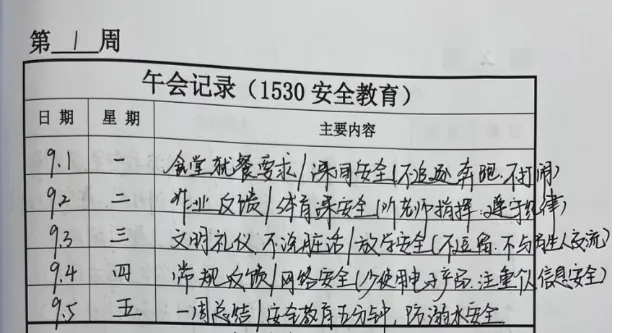 第 1 周
午会记录(1530安全教育)
日期 星期 主要内容
9.1 一 食堂就餐要求/课间安全(不追逐奔跑.不打闹)
9.2 二 作业反馈/体育课安全(听老师指挥.遵守纪律)
9.3 三 文明礼仪 不说脏话/放学安全(不逗留.不与陌生人交流)
9.4 四 常规反馈/网络安全(少使用电子产品.注重个人信息安全)
9.5 五 一周总结/安全教育五分钟,防溺水安全